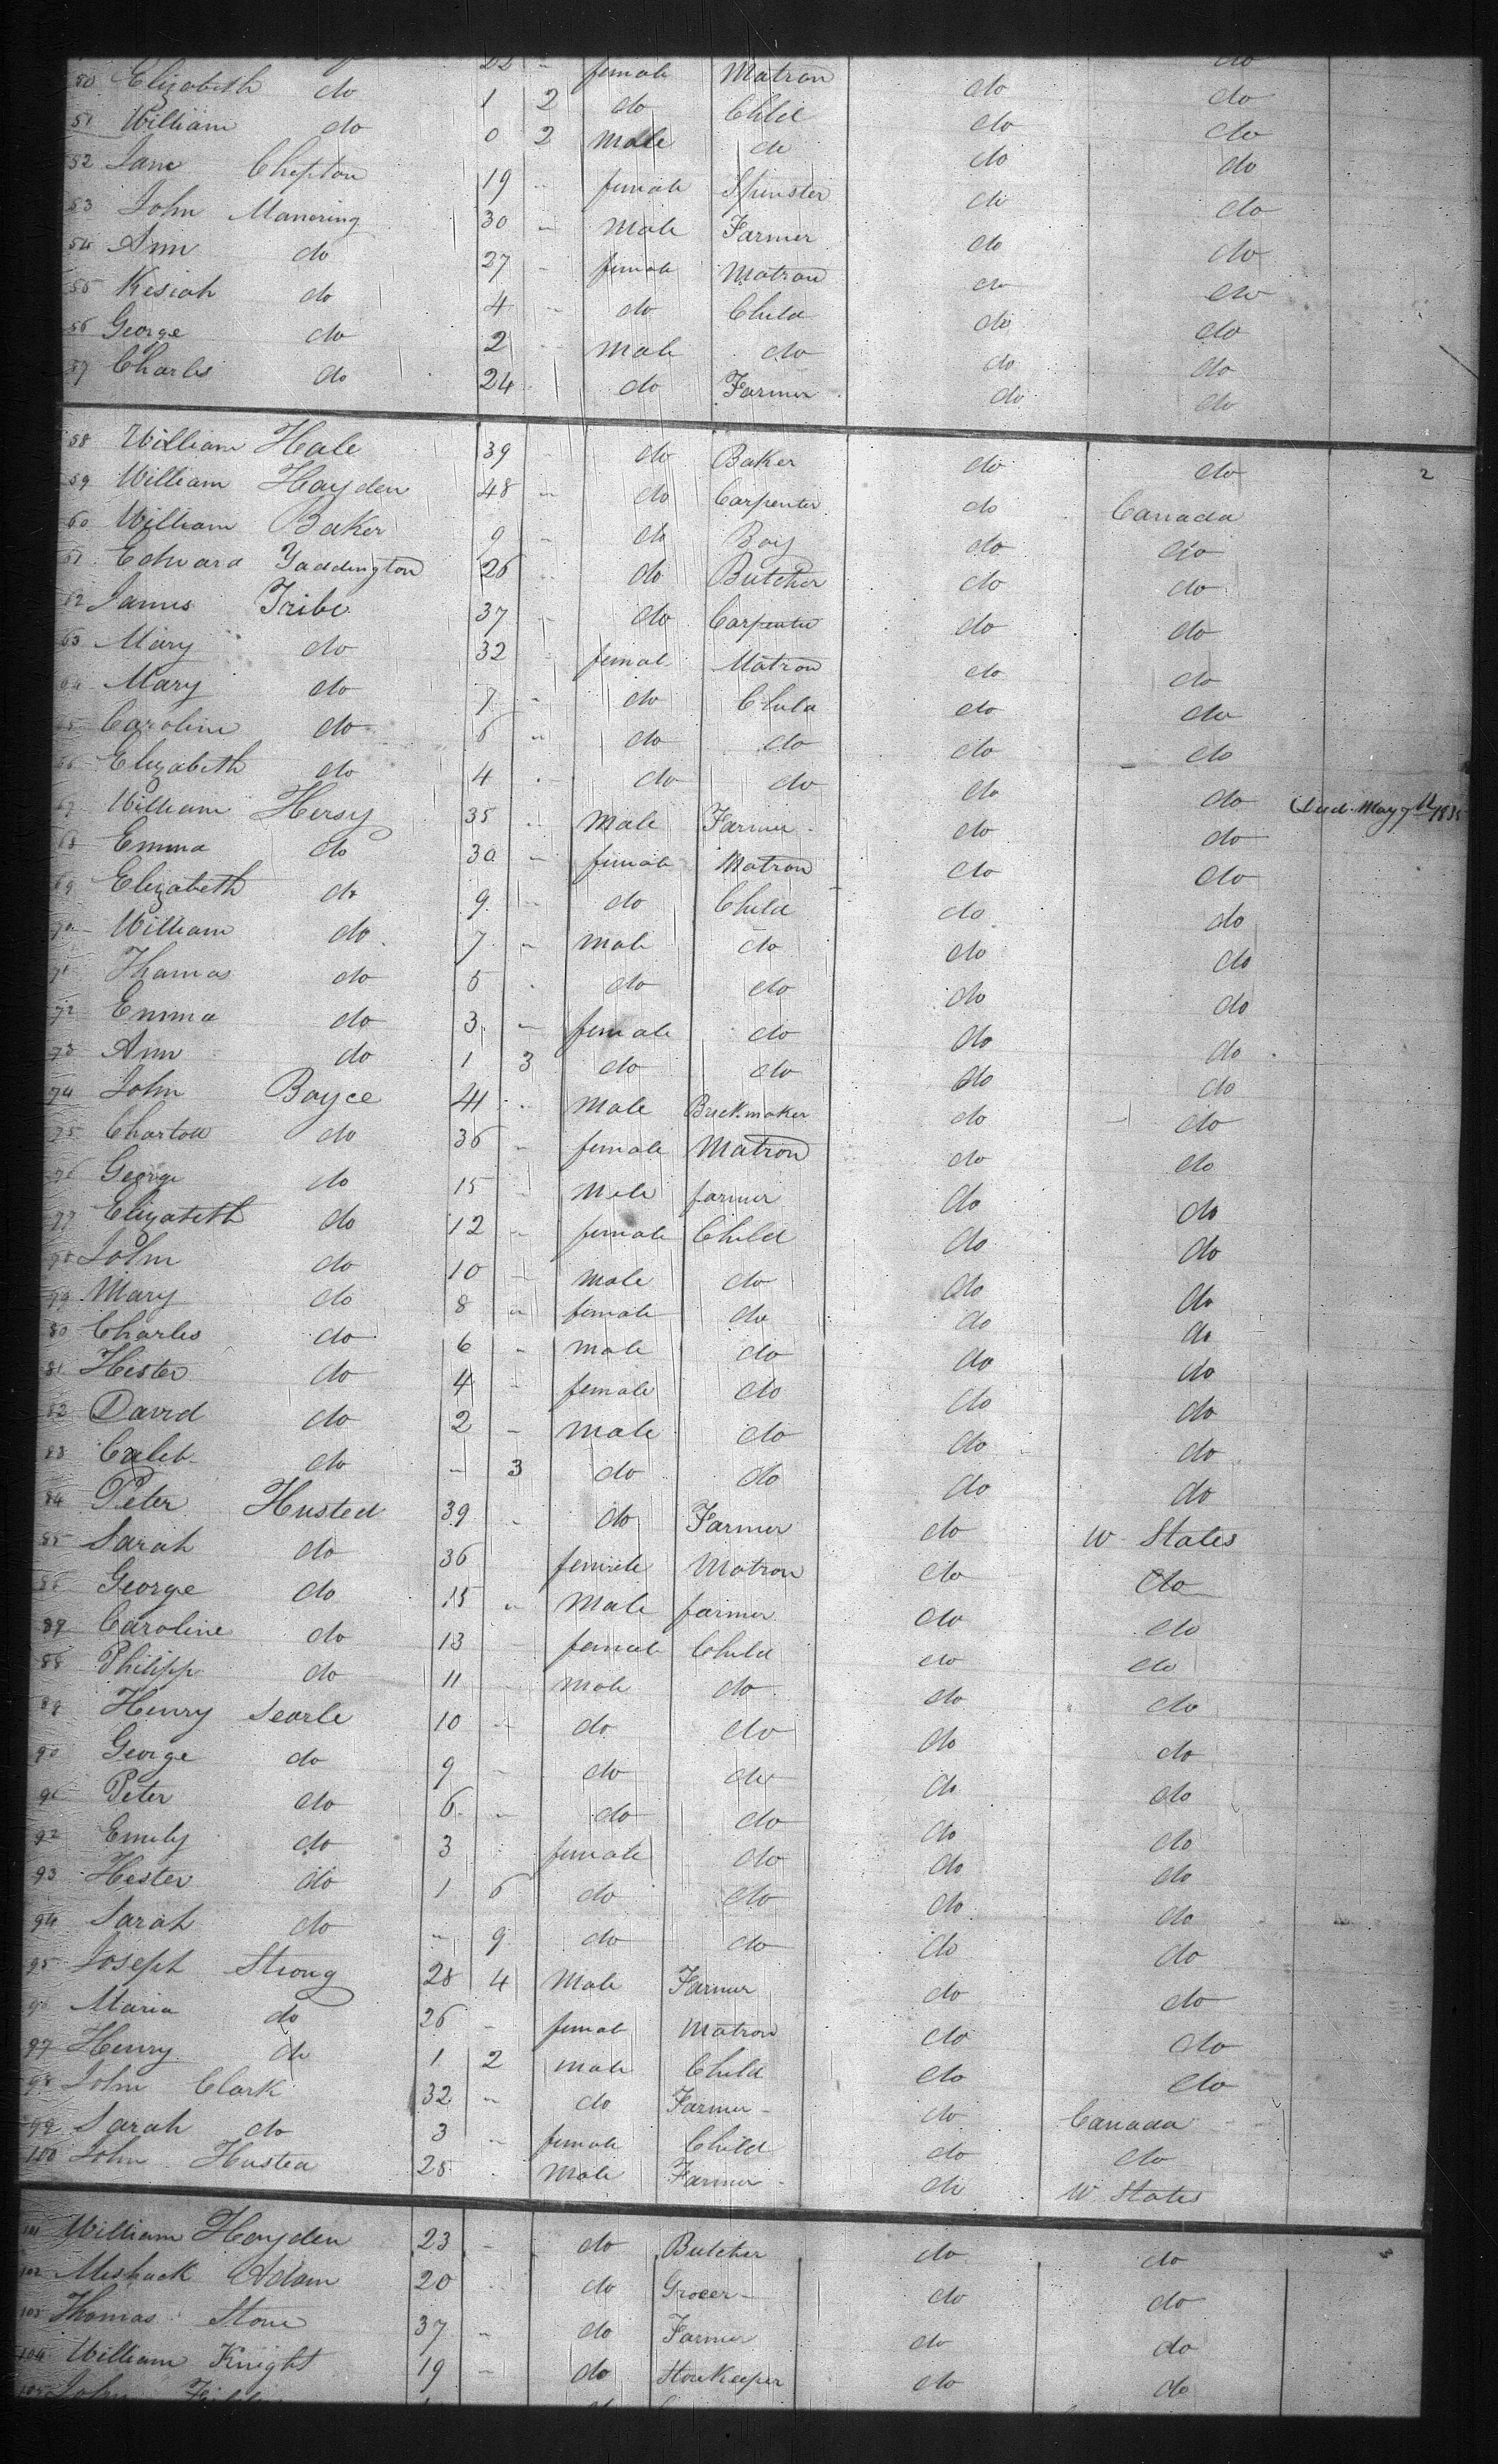 22 " female Matron do
50 Elizabeth do 1 2 do Child do do
51 William do 0 2 male do do do
52 Jane Chepton 19 " female Spinster do do
53 John Manering 30 " Male Farmer do do
54 Ann do 27 " female Matron do do
55 Kesiah do 4 " do Child do do
56 George do 2 " male do do do
57 Charles do 24 " do Farmer do do
58 William Hale 39 " do Baker do do 2
59 William Hayden 48 " do Carpenter do Canada
60 William Baker 9 " do Boy do do
61 Edward Yaddington 26 " do Butcher do do
62 James Tribe 37 " do Carpenter do do
63 Mary do 32 " female Matron do do
64 Mary do 7 " do Child do do
65 Caroline do 6 " do do do do
66 Elizabeth do 4 " do do do do
67 William Hersy 35 " Male Farmer do do Died May 7th 183
68 Emma do 30 " female Matron do do
69 Elizabeth do 9 " do Child do do
70 William do 7 " male do do do
71 Thomas do 5 " do do do do
72 Emma do 3 " female do do do
73 Ann do 1 3 do do do do
74 John Boyce 41 " Male Brickmaker do do
75 Charlott do 36 " female Matron do do
76 George do 15 " Male farmer do do
77 Elizabeth do 12 " female Child do do
78 John do 10 " male do do do
79 Mary do 8 " female do do do
80 Charles do 6 " male do do do
81 Hester do 4 " female do do do
82 David do 2 " male do do do
83 Caleb do " 3 do do do do
84 Peter Husted 39 " do Farmer do U States
85 Sarah do 36 female Matron do do
86 George do 15 " Male farmer do do
87 Caroline do 13 " female Child do do
88 Philipp do 11 " male do do do
89 Henry Searle 10 " do do do do
90 George do 9 " do do do do
91 Peter do 6 " do do do do
92 Emily do 3 " female do do do
93 Hester do 1 6 do do do do
94 Sarah do " 9 do do do do
95 Joseph Strong 28 4 Male Farmer do do
96 Maria do 26 " female Matron do do
97 Henry do 1 2 male Child do do
98 John Clark 32 " do Farmer do Canada
99 Sarah do 3 " female Child do do
100 John Husted 25 " Male Farmer do U States
101 William Hayden 23 " do Butcher do do
102 Meshack Adam 20 " do Grocer do do
103 Thomas Stone 37 " do Farmer do do
104 William Knight 19 " do Storekeeper do do
105 John